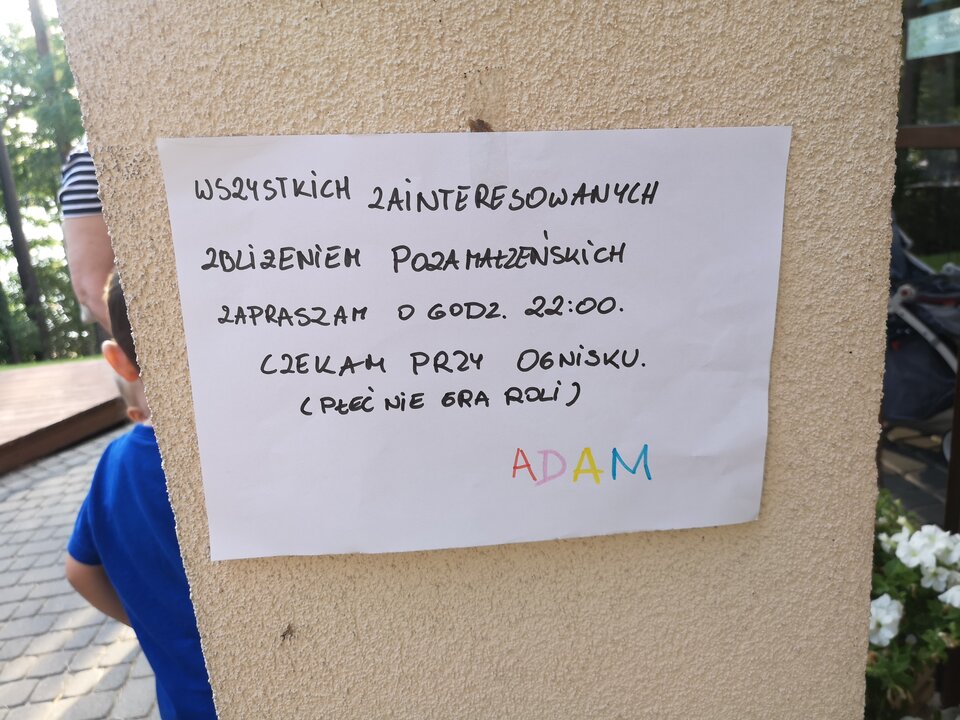 WSZYSTKICH ZAINTERESOWANYCH
ZBLIŻENIEM POZAMAŁŻEŃSKICH
ZAPRASZAM O GODZ. 22:00.
CZEKAM PRZY OGNISKU.
(PŁEĆ NIE GRA ROLI)
ADAM